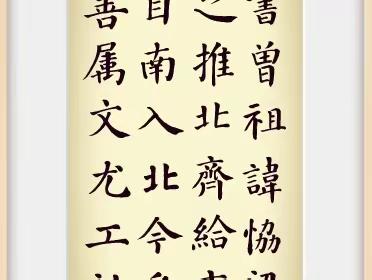 書曾祖諱恊
之推北齊給
自南入北今
善属文尤工